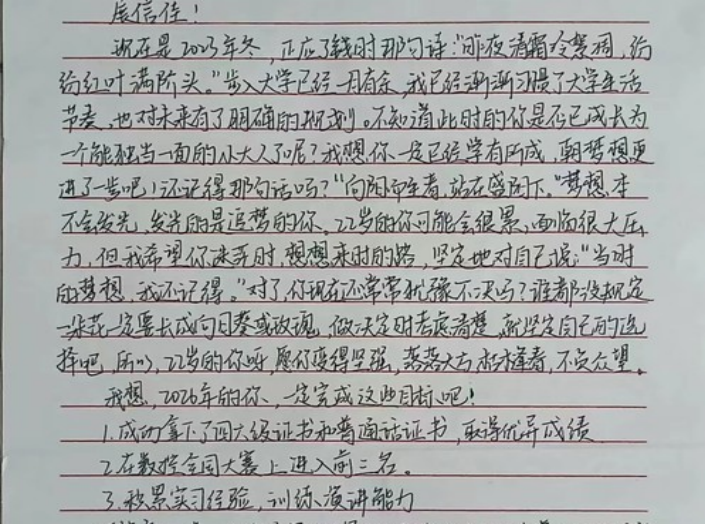 展信佳！
现在是2023年冬，正应了钱时那句诗："昨夜清霜冷絮裯，纷
纷红叶满阶头。"步入大学已经一月有余，我已经渐渐习惯了大学生活
节奏，也对未来有了明确的规划。不知道此时的你是否已成长为
一个能独当一面的小大人了呢？我想，你一定已经学有所成，朝梦想更
进了一步吧！还记得那句话吗？"向阳而生者，站在盛阳下。"梦想本
不会发光，发光的是追梦的你。22岁的你可能会很累，面临很大压
力，但我希望你迷茫时，想想来时的路，坚定地对自己说："当时
的梦想，我还记得。"对了，你现在还常常犹豫不决吗？谁都没规定
一朵花一定要长成向日葵或玫瑰，做决定时考虑清楚，就坚定自己的选
择吧，所以，22岁的你呀，愿你变得坚强，落落大方，枯木逢春，不负众望。
我想，2026年的你，一定完成这些目标吧！
1.成功拿下了四六级证书和普通话证书，取得优异成绩
2.在数控全国大赛上进入前三名。
3.积累实习经验，训练演讲能力